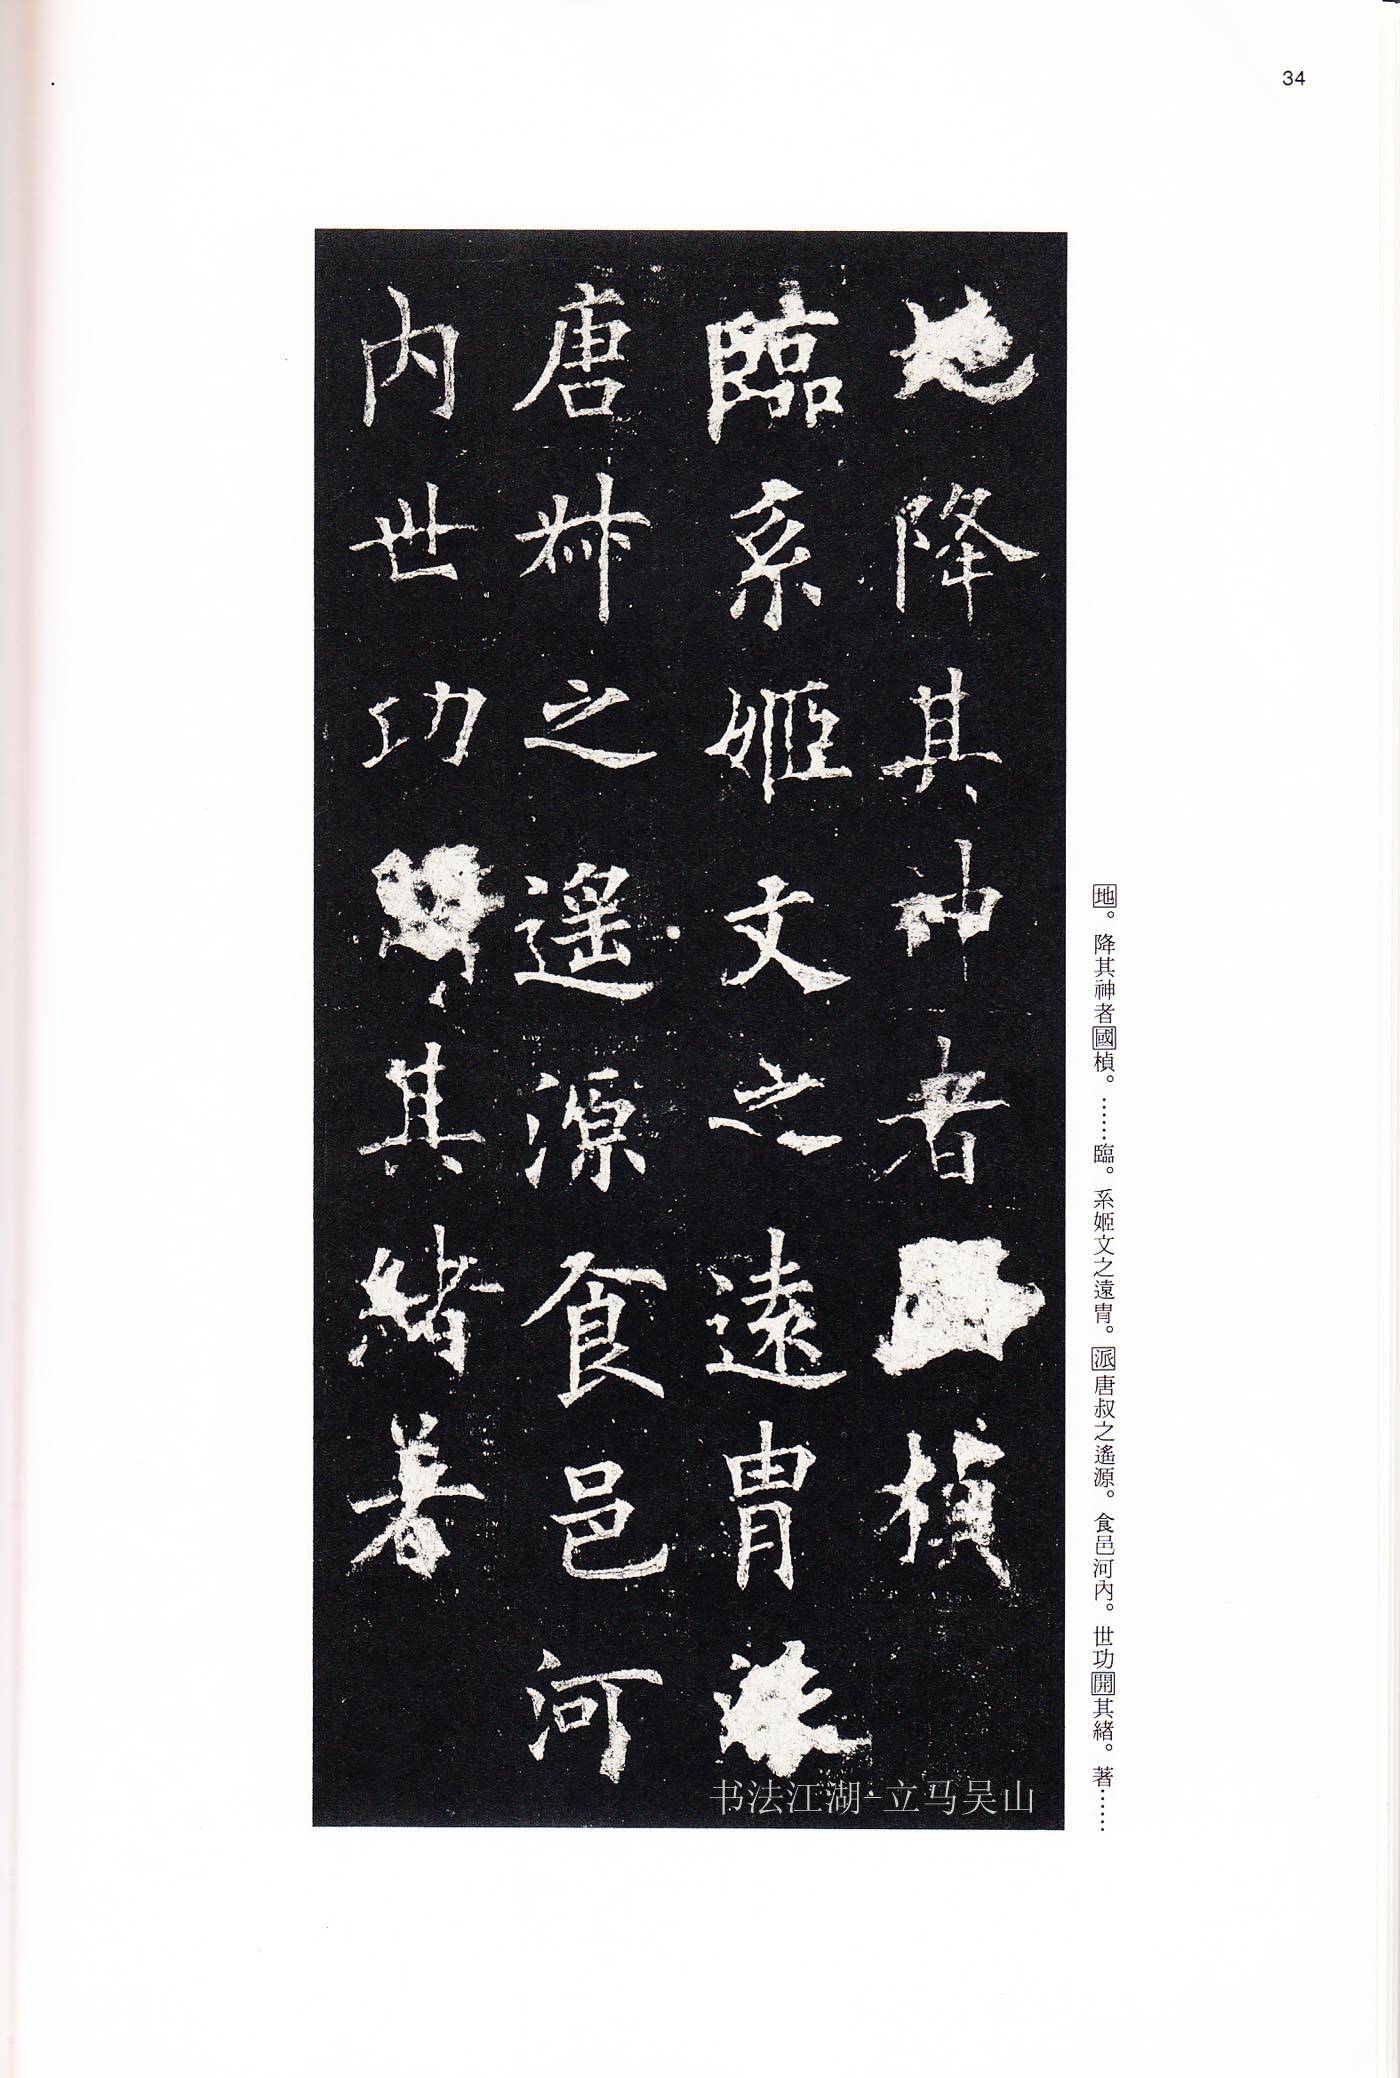 34
地降其神者楨
臨系姬文之遠胄派
唐叔之遙源食邑河
内世功開其緒著
地。降其神者國楨。……臨。系姬文之遠胄。派唐叔之遙源。食邑河內。世功開其緒。著……
书法江湖-立马吴山